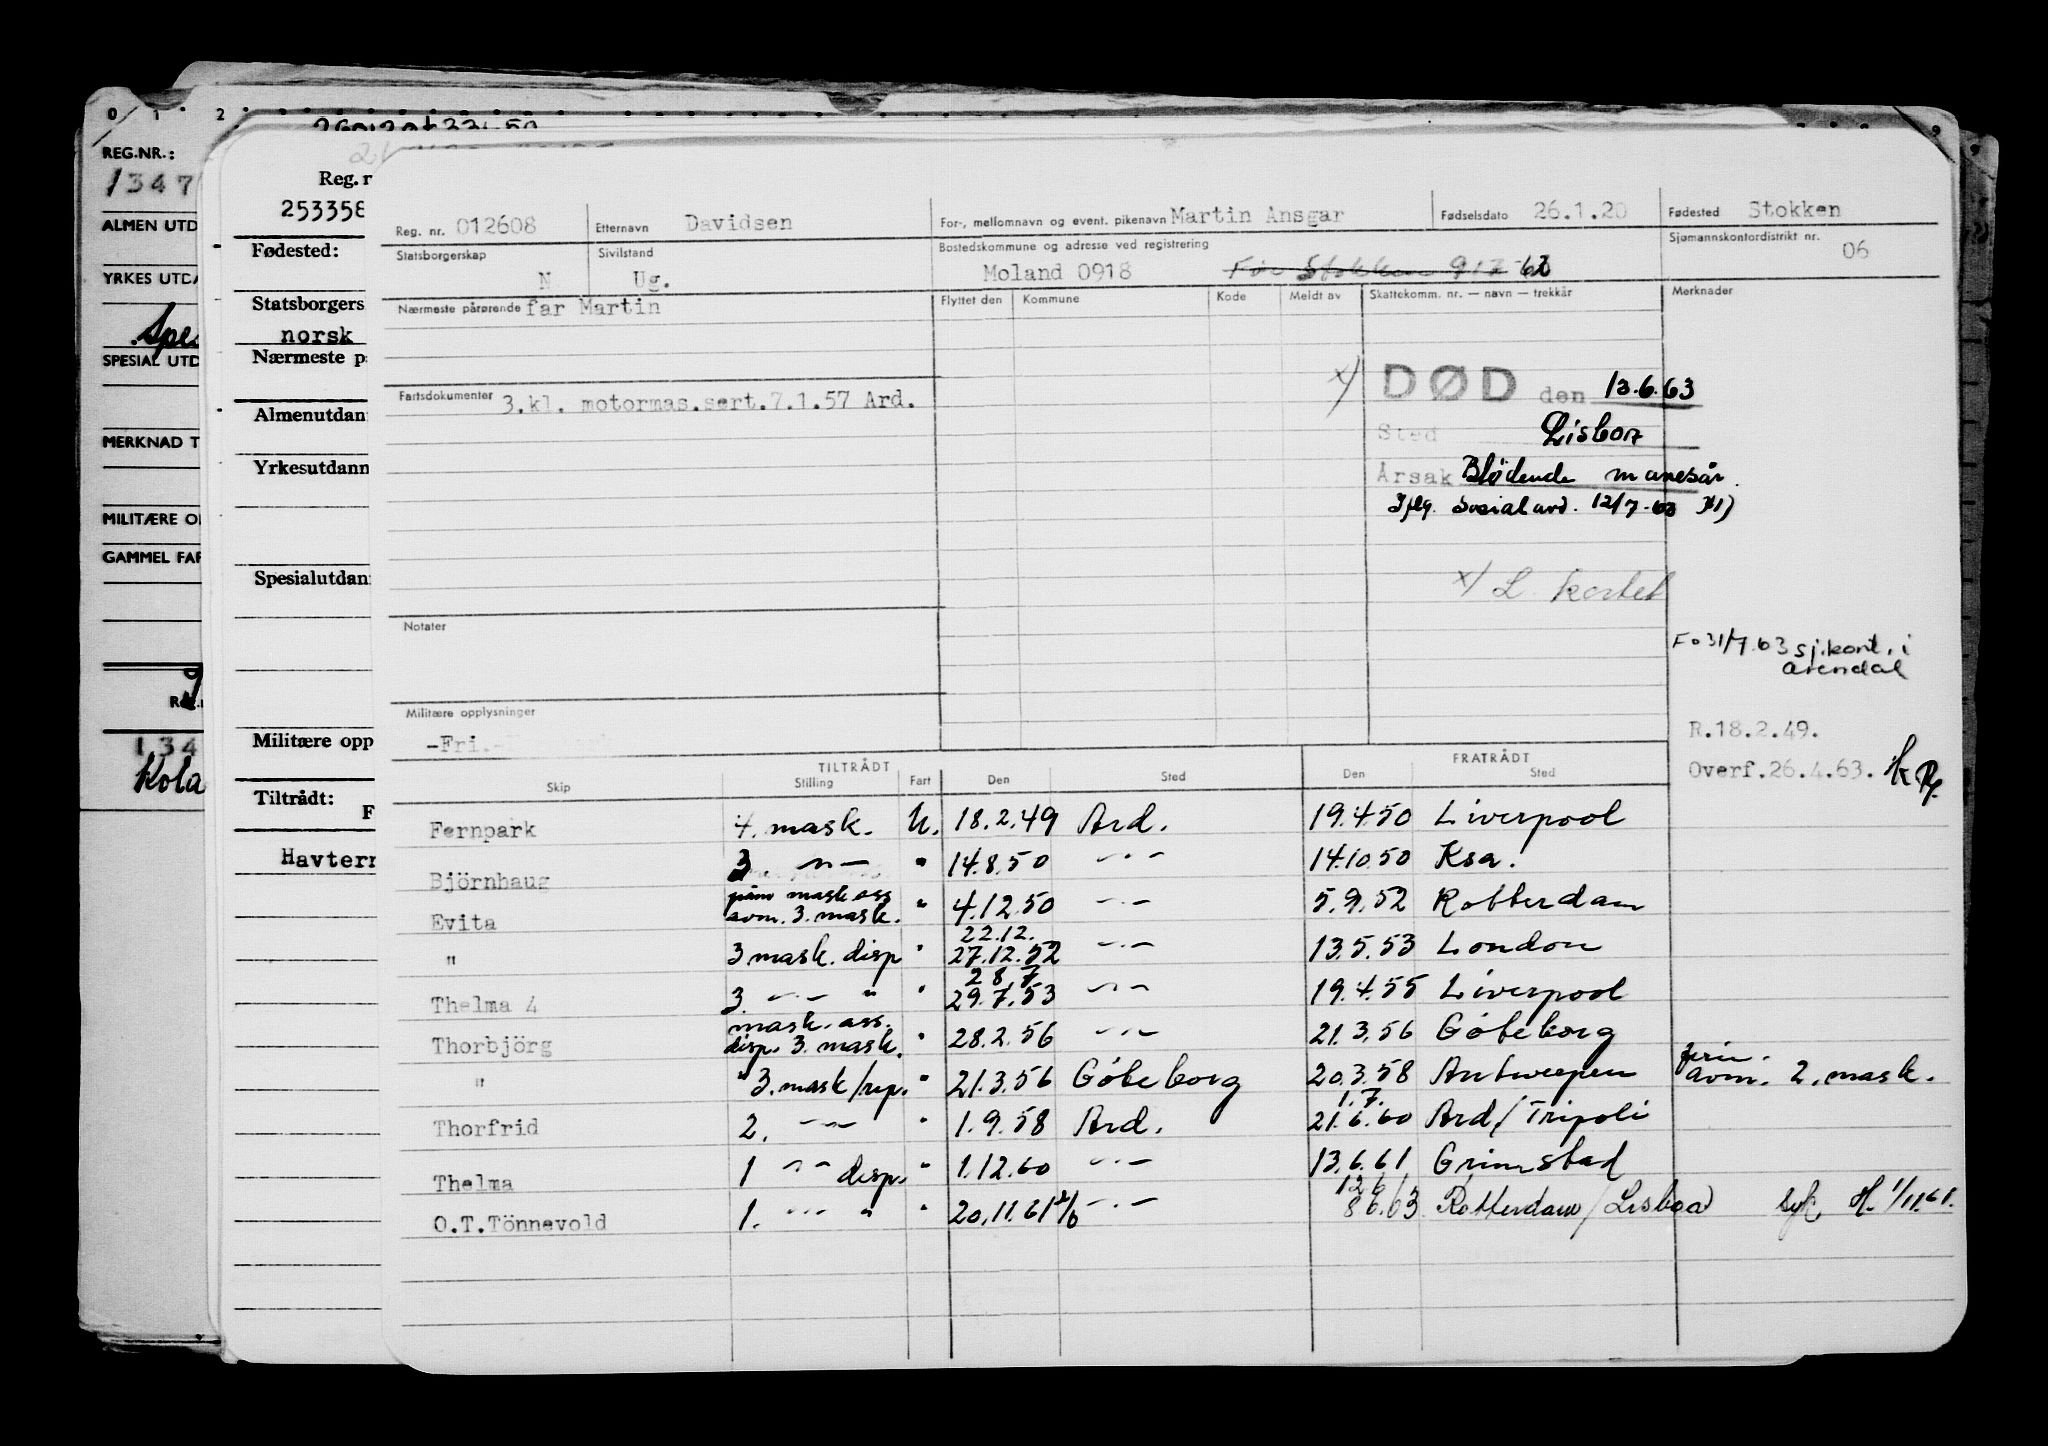 0 1 2
REG.NR.:
1347
ALMEN UTD
YRKES UTDA
SPESIAL UTD
MERKNAD T
MILITÆRE O
GAMMEL FAR
134
Kola
Reg. n
253358
Fødested:
Statsborgers
norsk
Nærmeste p
Almenutdan
Yrkesutdann
Spesialutdan
Militære opp
Tiltrådt:
F
Havtern
Reg. nr. 012608 Etternavn Davidsen For-, mellomnavn og event. pikenavn Martin Ansgar Fødselsdato 26.1.20 Fødested Stokken
Statsborgerskap N Sivilstand Ug. Bostedskommune og adresse ved registrering Moland 0918 Før Stokken 917 62 Sjømannskontordistrikt nr. 06
Nærmeste pårørende far Martin Flyttet den Kommune Kode Meldt av Skattekomm. nr. — navn — trekkår Merknader
x) DØD den 13.6.63
Fartsdokumenter 3.kl. motormas.sert.7.1.57 Ard.
Sted Lisboa
Årsak Blødende mavesår.
Iflg. Sosialavd. 12/7-63 x1)
x) L kortet
Notater
Fo 31/7.63 sj.kont. i
Arendal
Militære opplysninger
-Fri.-
R.18.2.49.
Overf.26.4.63.
TILTRÅDT FRATRÅDT
Skip Stilling Fart Den Sted Den Sted
Fernpark 4. mask. U. 18.2.49 Ard. 19.4.50 Liverpool
Björnhaug 3 —"— " 14.8.50 —"— 14.10.50 Ksa.
Evita mask ass
avm. 3. mask. " 4.12.50 —"— 5.9.52 Rotterdam
" 3 mask. disp " 22.12.
27.12.52 —"— 13.5.53 London
Thelma 4 3. —"— " " 28 7
29.7.53 —"— 19.4.55 Liverpool
Thorbjörg mask. ass.
disp. 3. mask. " 28.2.56 —"— 21.3.56 Göteborg
" " 3. mask/rep. " 21.3.56 Göteborg 20.3.58 Antwerpen avm. 2. mask.
Thorfrid 2. —"— " 1.9.58 Ard. 1.7.
21.6.60 Ard/Tripoli
Thelma 1 —"— disp. " 1.12.60 —"— 13.6.61 Grimstad
O.T.Tönnevold 1. —"— " " 20.11.61 —"— 12 6
8 6.63 Rotterdam/Lisboa syk 1/11.61.